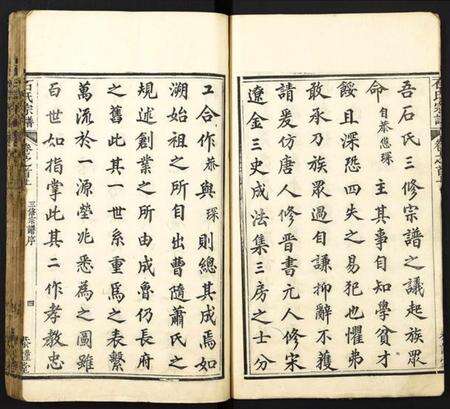 吾石氏三修宗譜之議起族眾
命自恭琛主其事自知學貧才
餒且深恐四失之易犯也懼弗
敢承乃族眾過自謙抑辭不獲
請爰仿唐人修晉書元人修宋
遼金三史成法集三房之士分
工合作恭與琛則總其成焉如
溯始祖之所自出曹隨蕭氏之
規述創業之所由成魯仍長府
之舊此其一世系重為之表繫
萬流於一源塋兆悉為之圖雖
百世如指掌此其二作孝教忠
石氏宗譜 卷之首上 三修宗譜序 四